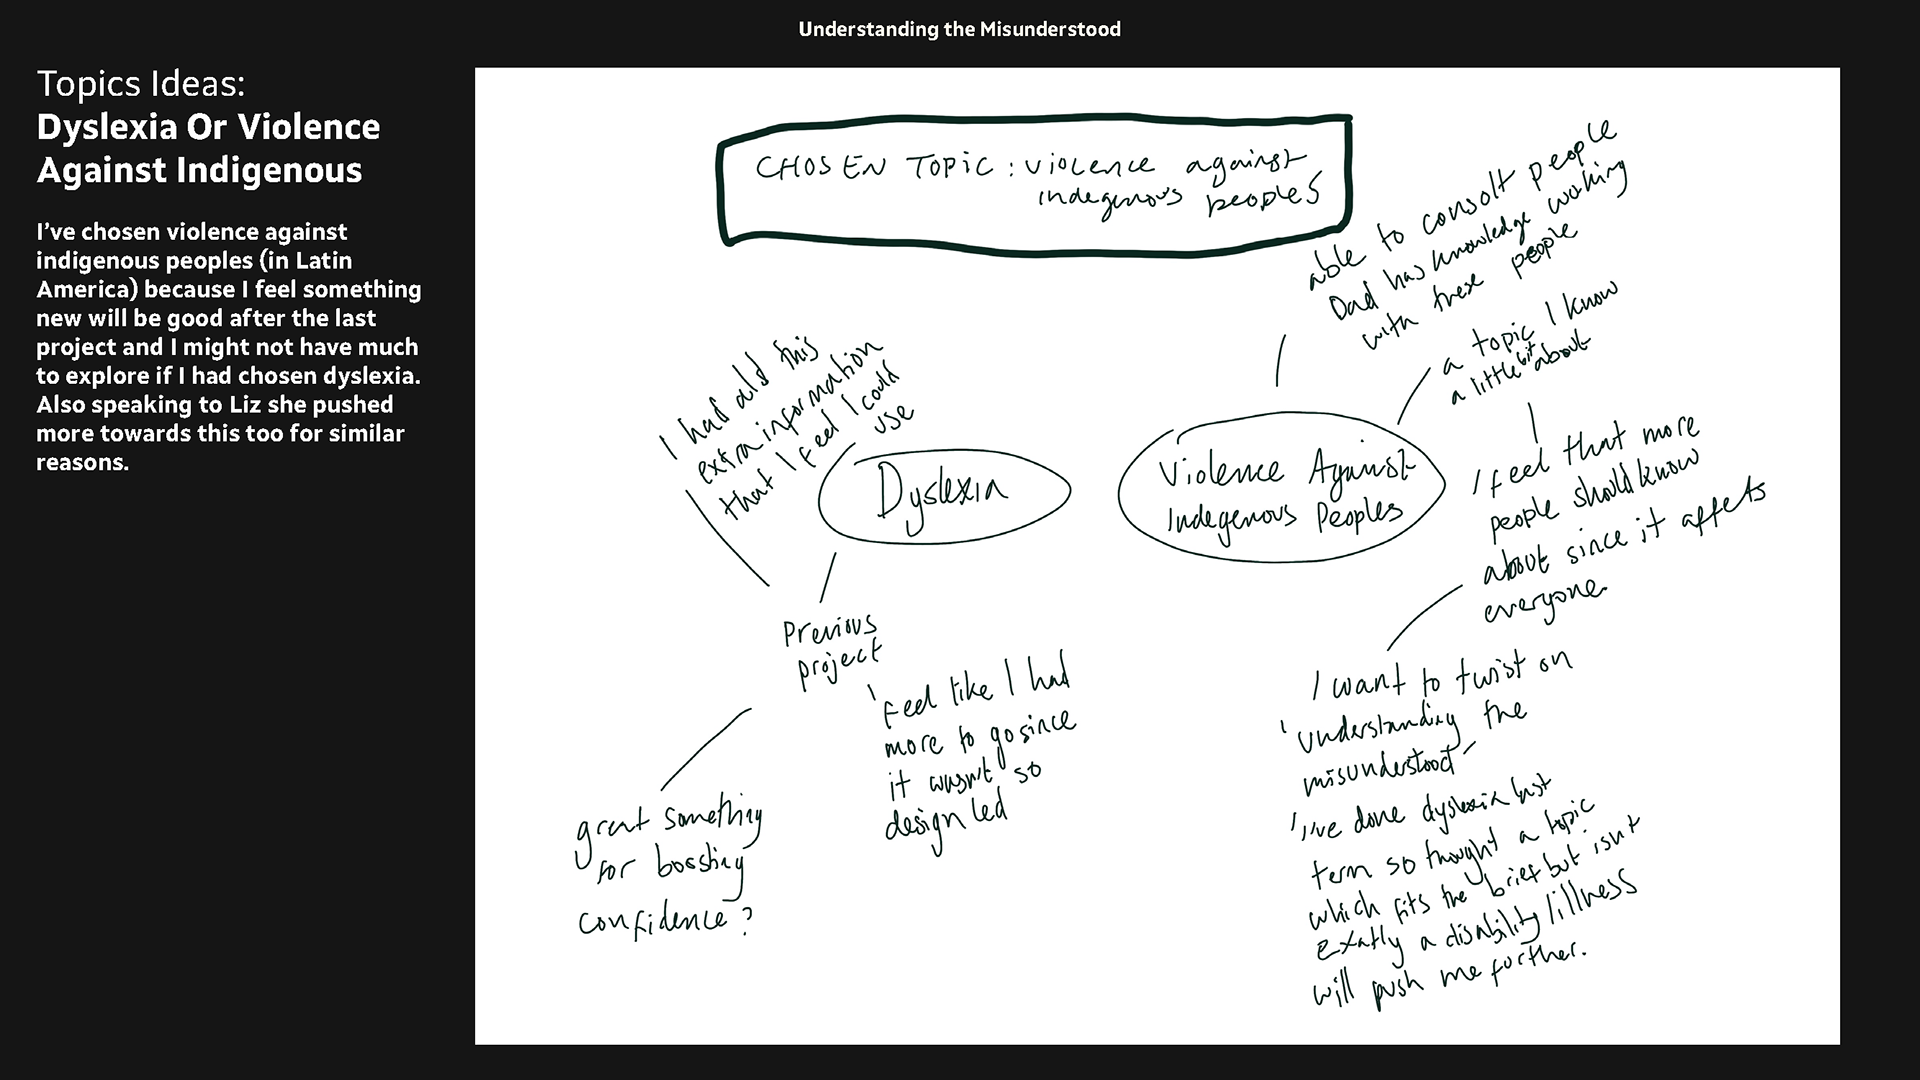 Understanding the Misunderstood
Topics Ideas:
Dyslexia Or Violence
Against Indigenous
I've chosen violence against
indigenous peoples (in Latin
America) because I feel something
new will be good after the last
project and I might not have much
to explore if I had chosen dyslexia.
Also speaking to Liz she pushed
more towards this too for similar
reasons.
CHOSEN TOPIC: violence against
indegenous peoples
able to consolt people
Dad has knowledge working
with these people
a topic I know
a little bit about
I feel that more
people should know
about since it affects
everyone.
I want to twist on
'understanding the
misunderstood'
I've done dyslexia last
term so thought a topic
which fits the brief but isnt
exatly a disability/illness
will push me further.
Violence Against
Indegenous Peoples
Dyslexia
I had all this
extra information
that I feel I could
use
Previous
project
feel like I had
more to go since
it wasn't so
design led
great something
for boosting
confidence?